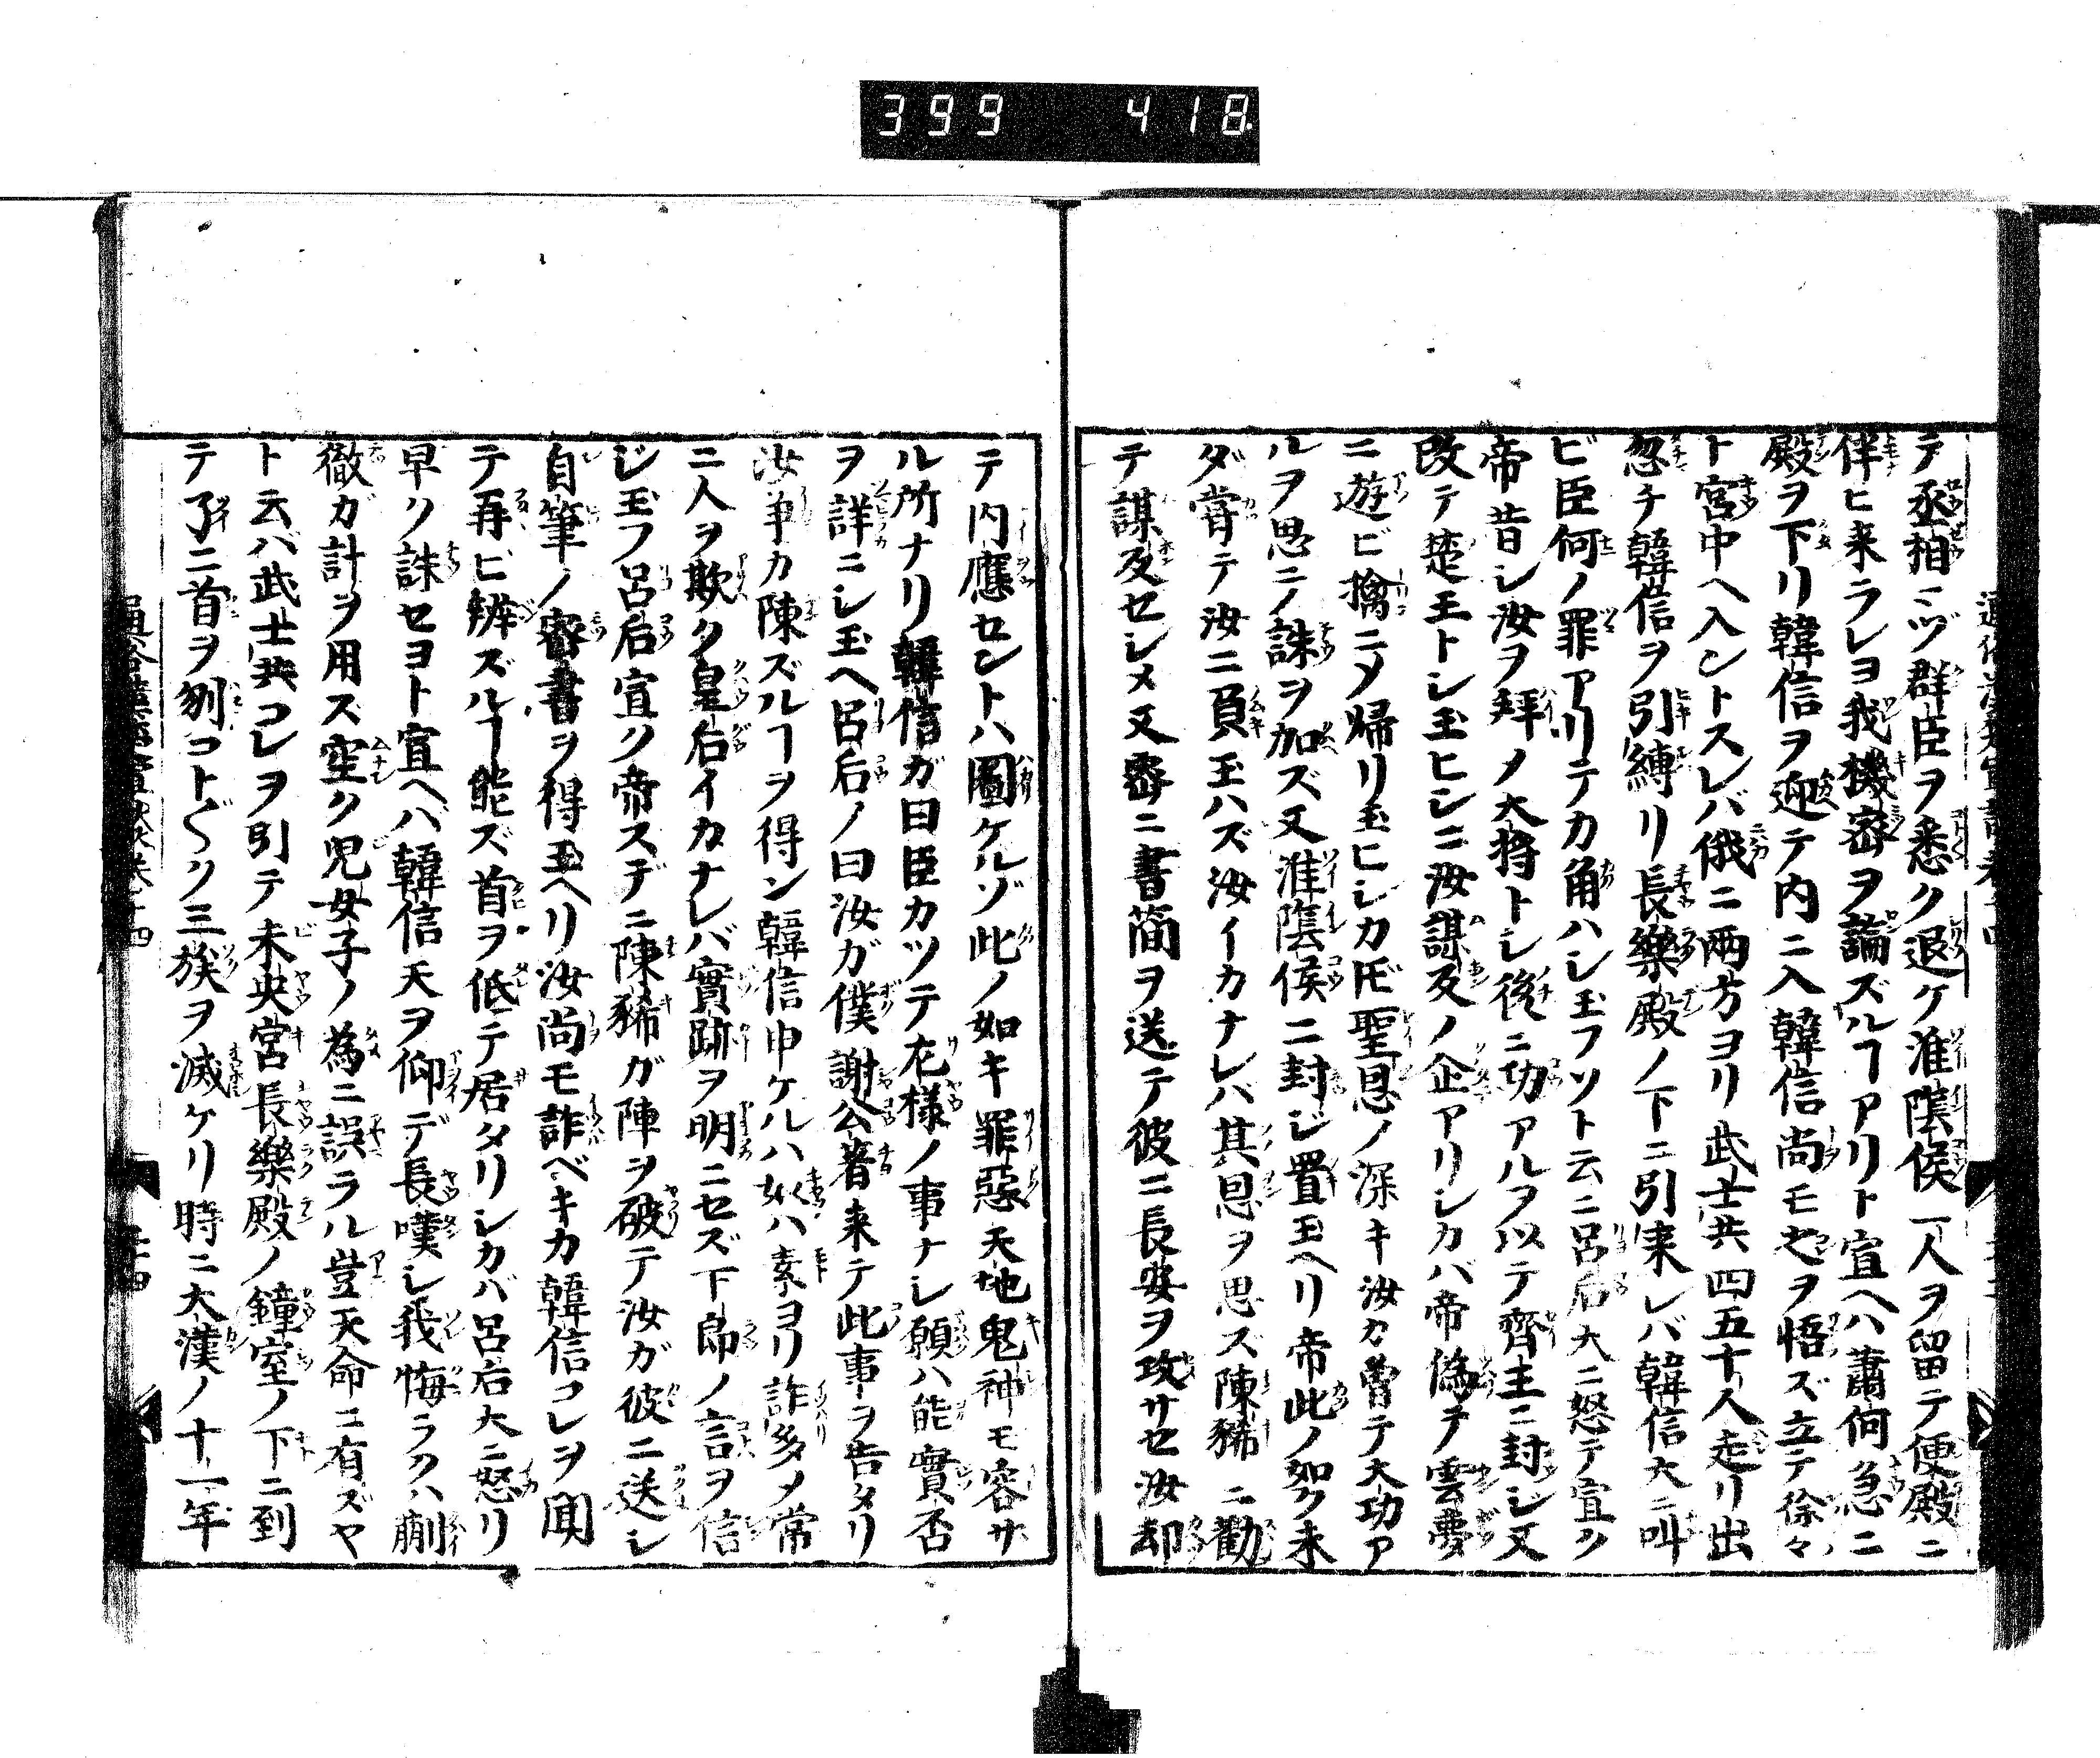 399 418
テ丞相ミヅ群臣ヲ悉ク退ケ淮陰侯一人ヲ留テ便殿ニ
伴ヒ来ラレヨ我機密ヲ論ズルヿアリト宣ヘハ蕭何急ニ
殿ヲ下リ韓信ヲ迎テ内ニ入韓信尚モ心ヲ悟ズ立テ徐々
ト宮中ヘ入ントスレバ俄ニ兩方ヨリ武士共四五十人走リ出
忽チ韓信ヲ引縛リ長樂殿ノ下ニ引来レバ韓信大ニ叫
ビ臣何ノ罪アリテカ角ハシ玉フソト云ニ呂后大ニ怒テ宣ク
帝昔シ汝ヲ拜メ大將トシ後ニ功アルヲ以テ齊王ニ封ジ又
改テ楚王トシ玉ヒシニ汝謀反ノ企アリシカバ帝偽テ雲夢
ニ遊ビ擒ニメ帰リ玉ヒシカ𪜈聖恩ノ深キ汝カ曽テ大功ア
ルヲ思ニノ誅ヲ加ズ又淮陰侯ニ封ジ置玉ヘリ帝此ノ如ク未
ダ嘗テ汝ニ負玉ハズ汝イカナレバ其恩ヲ思ズ陳豨ニ勸
テ謀反セシメ又密ニ書簡ヲ送テ彼ニ長安ヲ攻サセ汝却
テ内應セントハ圖ケルゾ此ノ如キ罪惡天地鬼神モ容サ
ル所ナリ韓信ガ曰臣カツテ左様ノ事ナシ願ハ能實否
ヲ詳ニシ玉ヘ呂后ノ曰汝ガ僕謝公著来テ此事ヲ告タリ
汝争カ陳ズルヿヲ得ン韓信申ケルハ奴ハ素ヨリ詐多メ常
ニ人ヲ欺ク皇后イカナレバ實跡ヲ明ニセズ下郎ノ言ヲ信
ジ玉フ呂后宣ク帝スデニ陳豨ガ陣ヲ破テ汝ガ彼ニ送シ
自筆ノ密書ヲ得玉ヘリ汝尚モ詐ベキカ韓信コレヲ聞
テ再ビ辨ズルヿ能ズ首ヲ低テ居タリシカバ呂后大ニ怒リ
早ク誅セヨト宣ヘハ韓信天ヲ仰デ長嘆シ我悔ラクハ蒯
徹ガ計ヲ用ス空ク児女子ノ為ニ誤ラル豈天命ニ有ズヤ
ト云バ武士共コレヲ引テ未央宮長樂殿ノ鐘室ノ下ニ到
テ了ニ首ヲ刎コト〴〵ク三族ヲ滅ケリ時ニ大漢ノ十一年